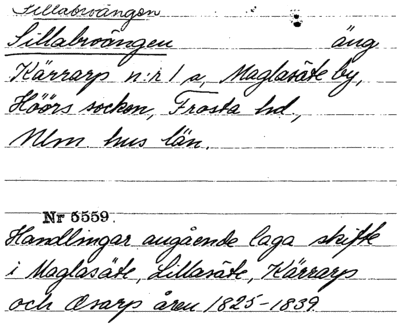 Sillabroängen
Sillabroängen äng
Kärrarp n:r 1 a, Maglasäte by,
Höörs socken, Frosta hd,
Mlm hus län.
Nr 5559.
Handlingar angående laga skifte
i Maglasäte, Lillasäte, Kärrarp
och Osarp åren 1825-1839.